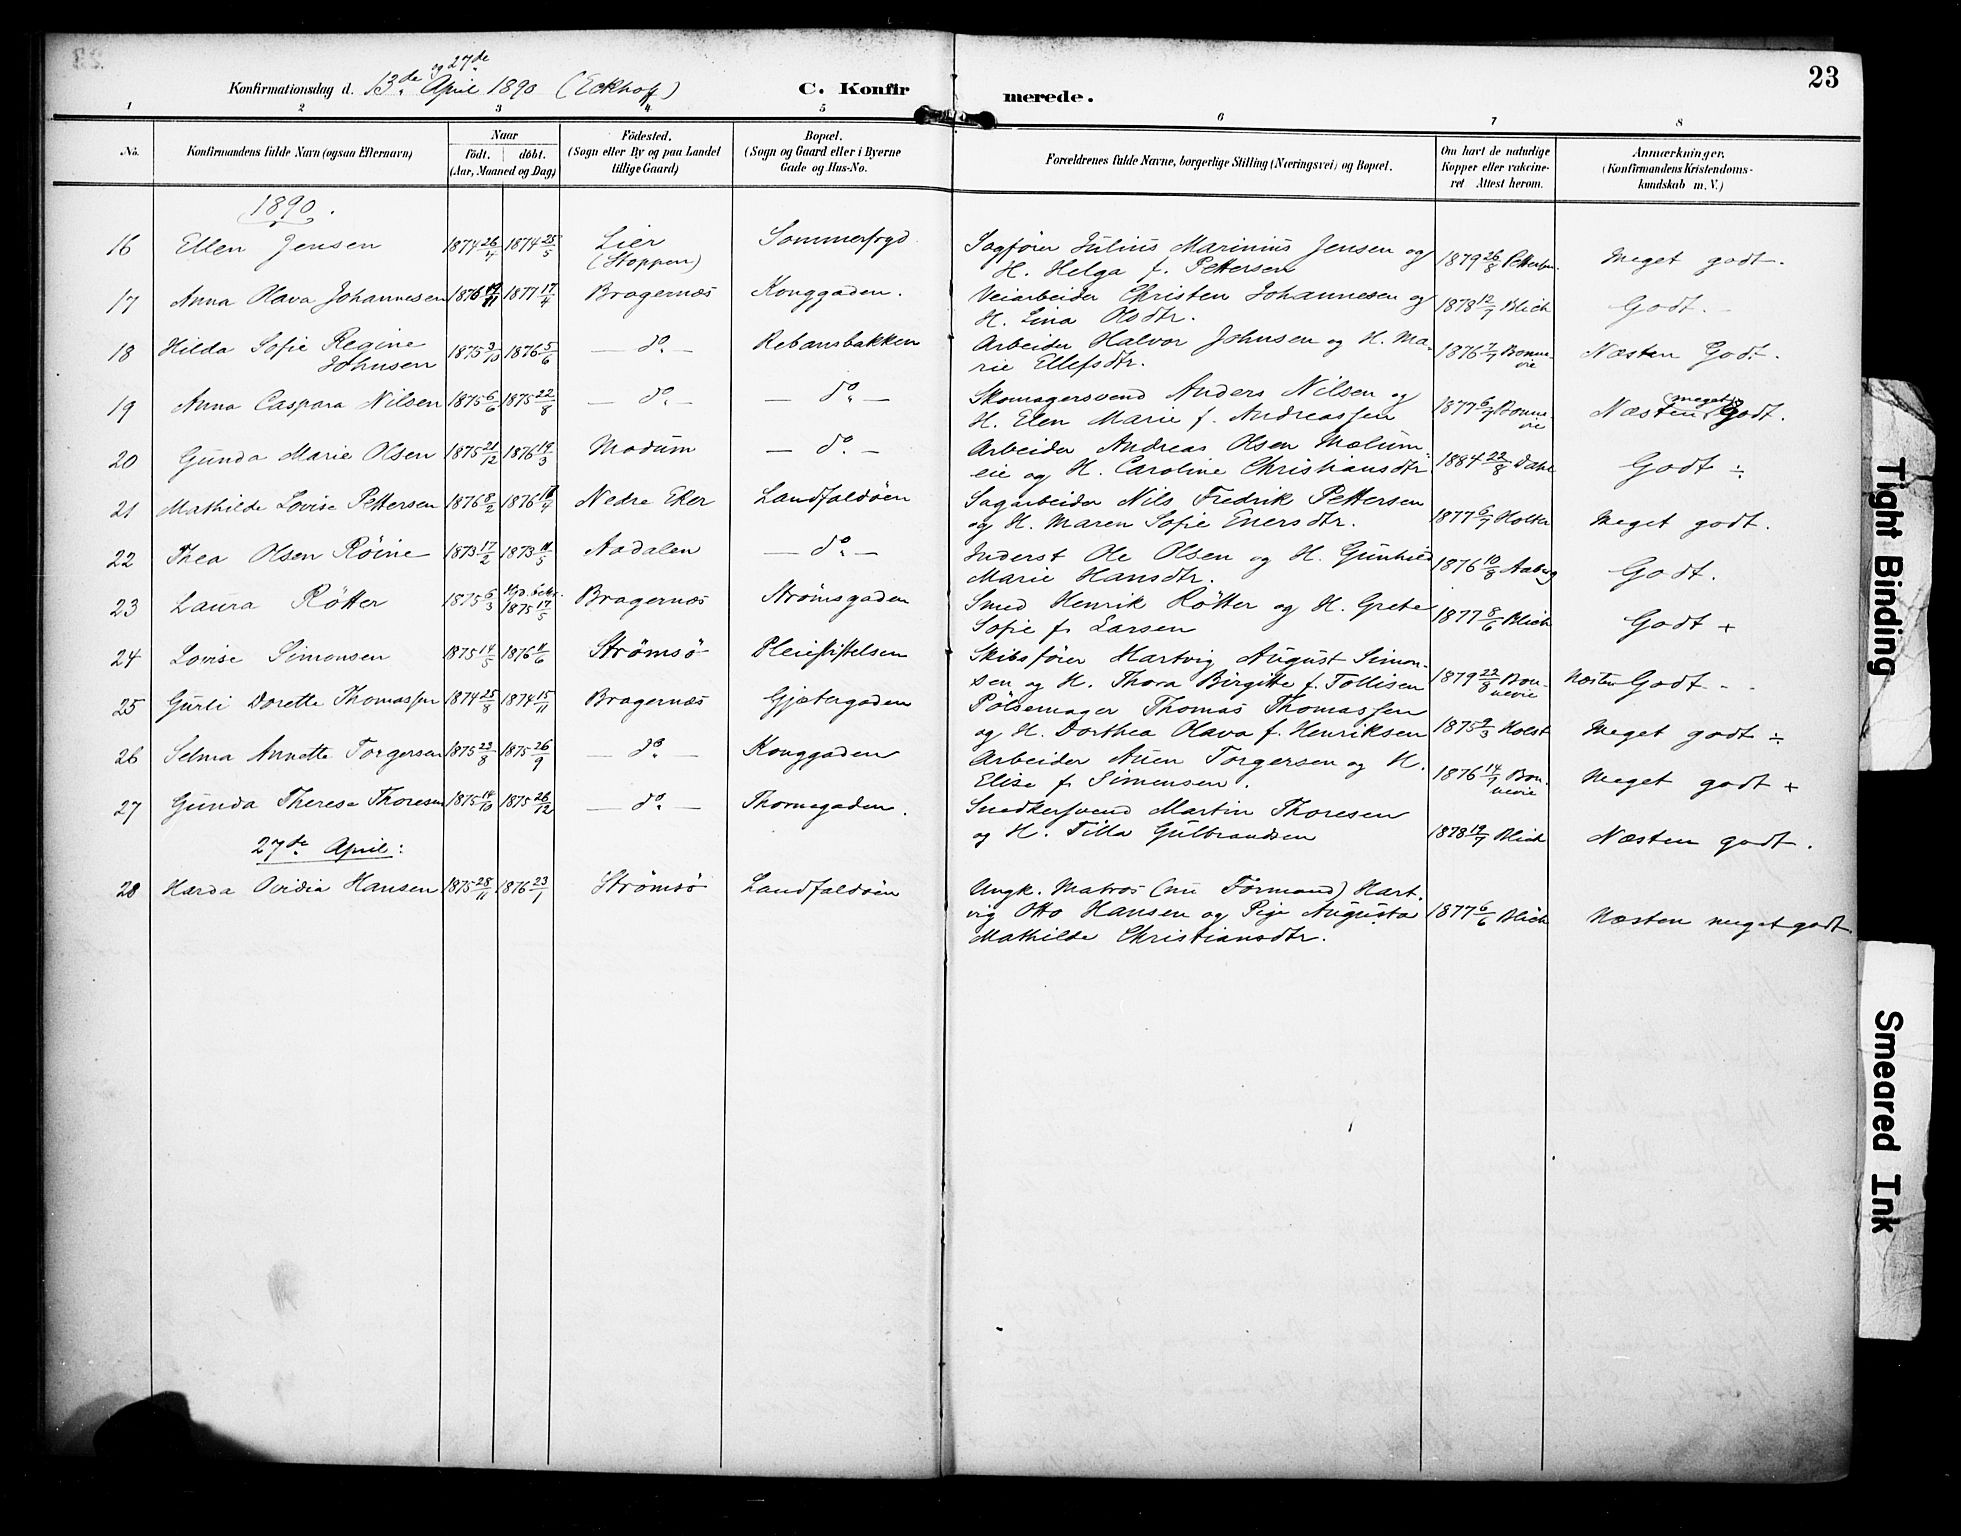 23
og 27de
Konfirmationsdag d. 13de April 1890 (Eckhoff) C. Konfir merede.
1 2 3 4 5 6 7 8
No. Konfirmandens fulde Navn (ogsaa Efternavn) Naar födt. döbt. (Aar, Maaned og Dag) Födested. (Sogn eller By og paa Landet tillige Gaard) Bopæl. (Sogn og Gaard eller i Byerne Gade og Hus-No. Forældrenes fulde Navne, borgerlige Stilling (Næringsvei) og Bopæl. Om havt de naturlige Kopper eller vakcineret Attest herom. Anmærkninger. (Konfirmandens Kristendomskundskab m. V.)
1890.
16 Ellen Jensen 1874 26/4 1874 25/5 Lier (Stoppen) Sommerfryd Sagfører Julius Marinius Jensen og
H. Helga f. Pettersen 1879 26/8 Meget godt.
17 Anna Olava Johannesen 1876 1877 17/4 Bragernæs Konggaden. Veiarbeider Christen Johannesen og
H. Lina Olsdtr. 1878 12/7 Blich Godt.
18 Hilda Sofie Regine
Johnsen 1875 1876 5/6 — do — Rebansbakken Arbeider Halvor Johnsen og H. Ma-
rie Ellefsdtr. 1876 7/7 Bonnevie Næsten Godt.
19 Anna Caspara Nilsen 1875 6/6 1875 22/8 — do — — do — Skomagersvend Anders Nilsen og
H. Elen Marie f. Andreassen 1877 6/7 Bonnevie Næsten meget Godt.
20 Gunda Marie Olsen 1875 21/12 1876 19/3 Modum — do — Arbeider Andreas Olsen Mælum-
eie og H. Caroline Christiansdtr 1884 22/8 Dahl Godt ÷
21 Mathilde Lovise Pettersen 1876 8/2 1876 Nedre Eker Landfaldöen Sagarbeider Nils Fredrik Pettersen
og H. Maren Sofie Enersdtr. 1877 6/7 Holter Meget godt.
22 Thea Olsen Röine 1873 17/2 1873 11/5 Aadalen — do — Inderst Ole Olsen og H. Gunhild
Marie Hansdtr. 1876 10/8 Aaberg Godt.
23 Laura Rötter 1875 6/3 1875 17/5 Bragernæs Strömsgaden Smed Henrik Rötter og H. Grete
Sofie f. Larsen 1877 8/6 Blich Godt +
24 Lovise Simonsen 1875 14/5 1876 11/6 Strömsö Pleiestiftelsen Skibsförer Hartvig August Simon-
sen og H. Thora Birgitte f. Tollisen 1879 22/8 Bonnevie Næsten Godt
25 Gurli Dorette Thomassen 1874 25/8 1874 15/11 Bragernæs Gjætergaden Pölsemager Thomas Thomassen
og H. Dorthea Olava f. Henriksen 1875 Holst Meget godt ÷
26 Selma Annette Torgersen 1875 23/8 1875 26/9 — do — Konggaden Arbeider Auen Torgersen og H.
Elise f. Simensen. 1876 14/7 Bonnevie Meget godt +
27 Gunda Therese Thoresen 1875 14/10 1875 26/12 — do — Thornegaden. Snedkersvend Martin Thoresen
og H. Tilla Gulbrandsen 1878 19/7 Blich Næsten godt.
27de April:
28 Harda Ovidia Hansen 1875 28/11 1876 23/1 Strömsö Landfaldöen Ungk. Matros (nu Formand) Hart-
vig Otto Hansen og Pige Augusta
Mathilde Christiansdtr. 1877 6/6 Blich Næsten meget godt.
Tight Binding
Smeared Ink